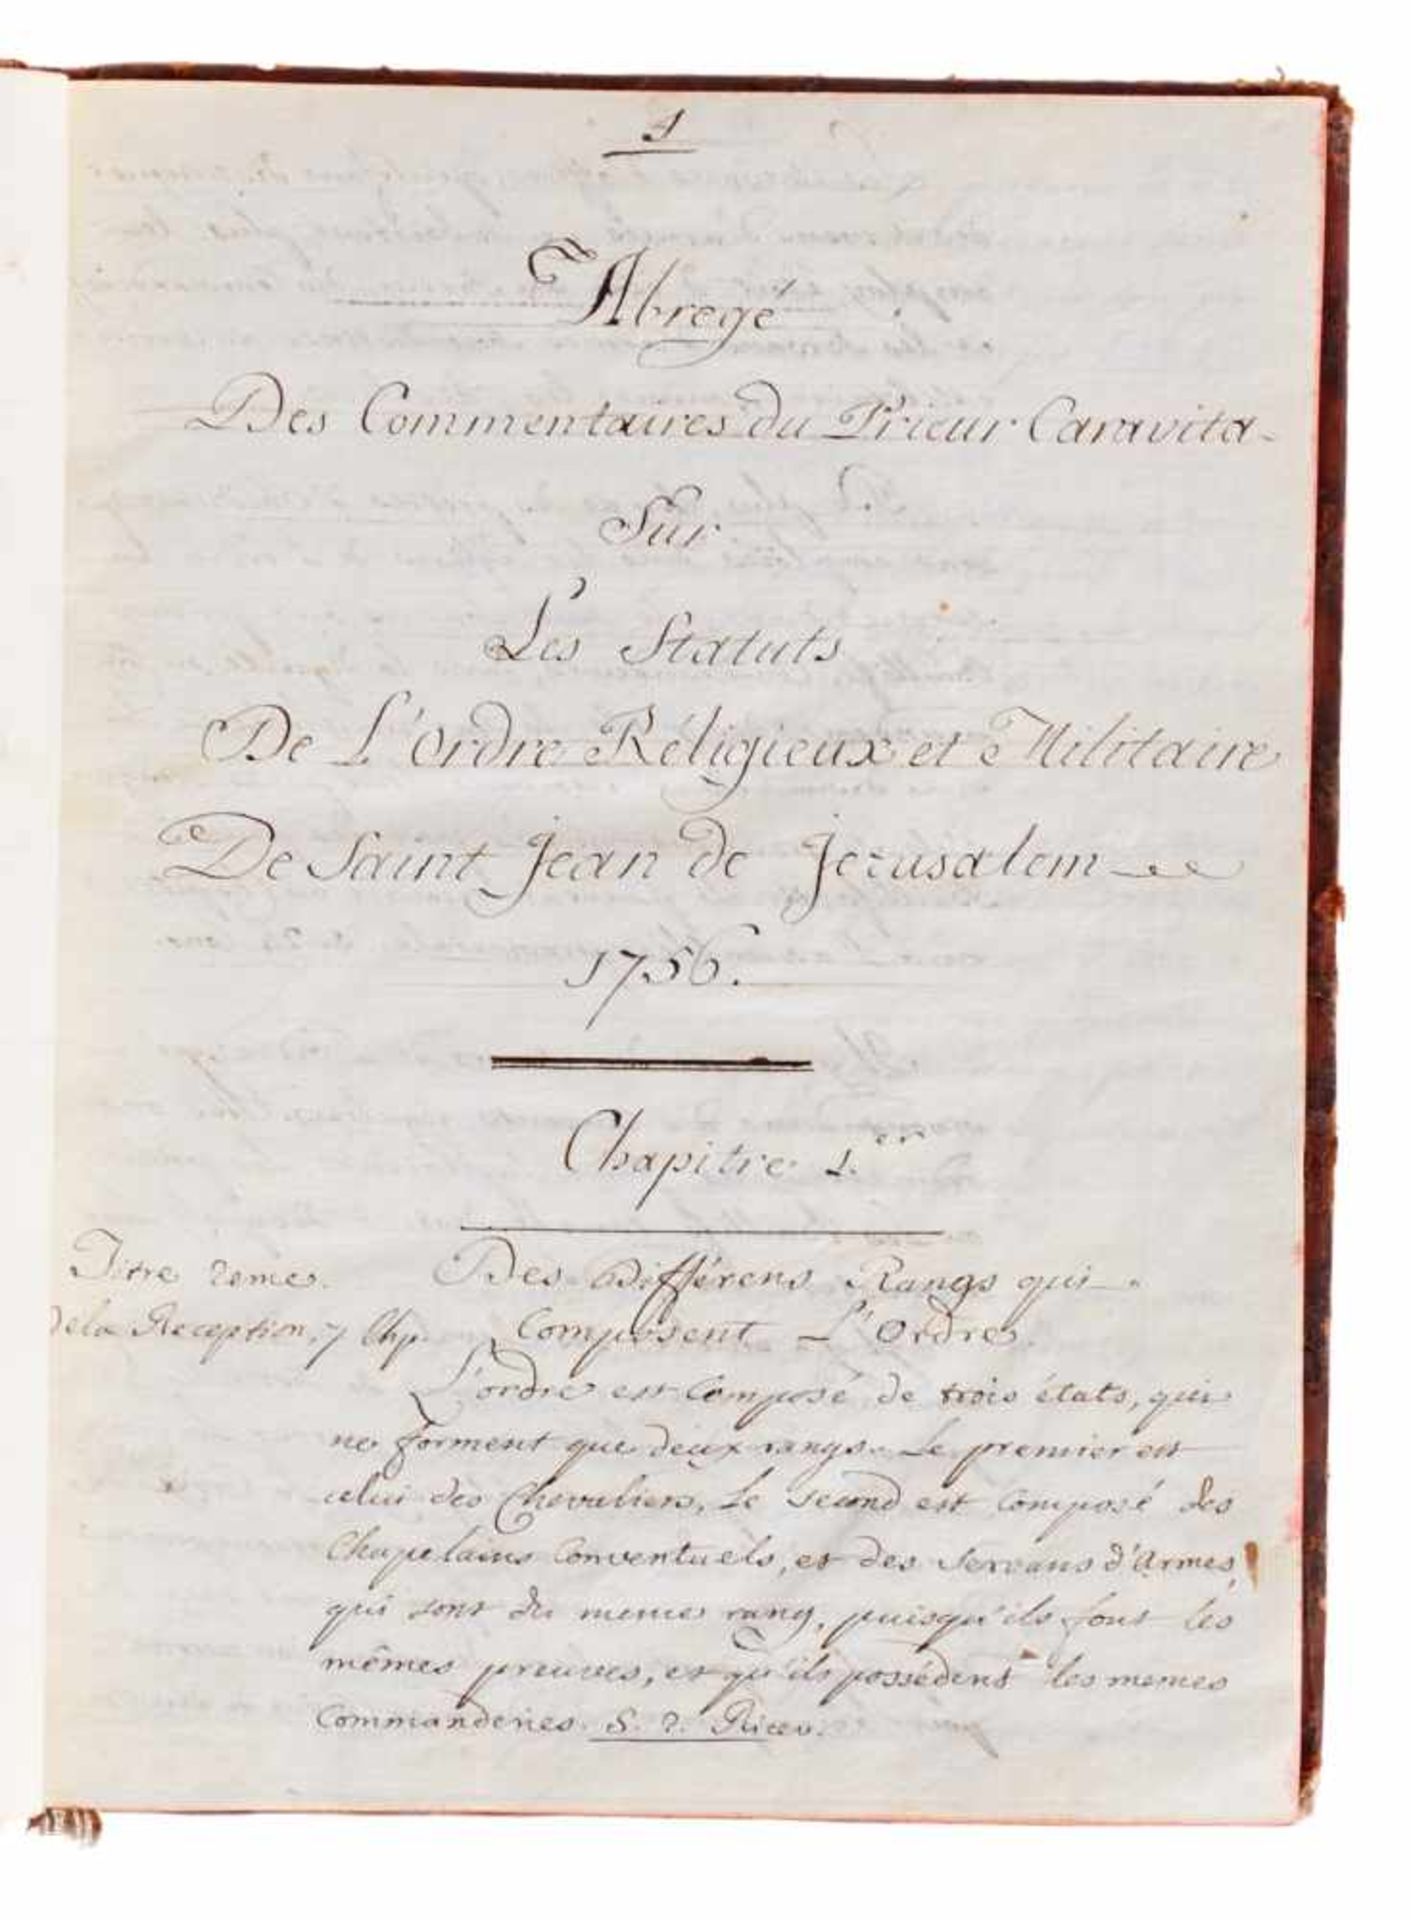 1
Abregé
Des Commentaires du Prieur Caravita
Sur
Les Statuts
De L'Ordre Réligieux et Militaire
De Saint Jean de Jerusalem
1756.
Chapitre 1.er
Titre 2eme.
De la Reception, 7 Chp.
Des Différens Rangs qui
Composent L'Ordre.
L'ordre est Composé de trois états, qui
ne forment que deux rangs. Le premier est
celui des Chevaliers, Le second est Composé des
Chapelains Conventuels, et des Servans d'Armes,
qui sont du meme rang, puisqu'ils font les
mêmes preuves, et qu'ils possédent les memes
Commanderies. S. 2. Ricev.